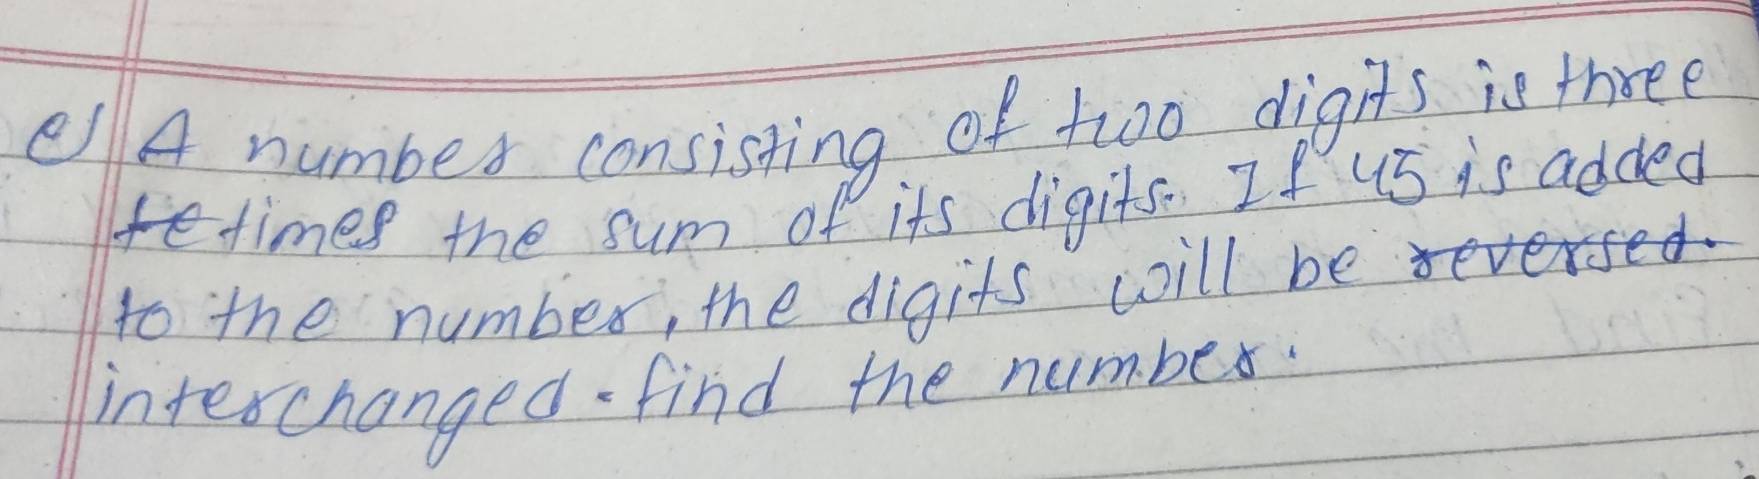 e) A number consisting of two digits is three
te times the sum of its digits. If 45 is added
to the number, the digits will be reversed.
interchanged. find the number.